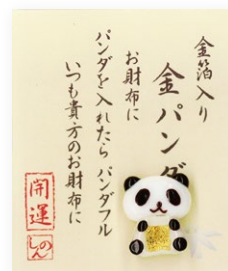 金箔入り
金パンダ
お財布に
パンダを入れたら パンダフル
いつも貴方のお財布に
開運
のん